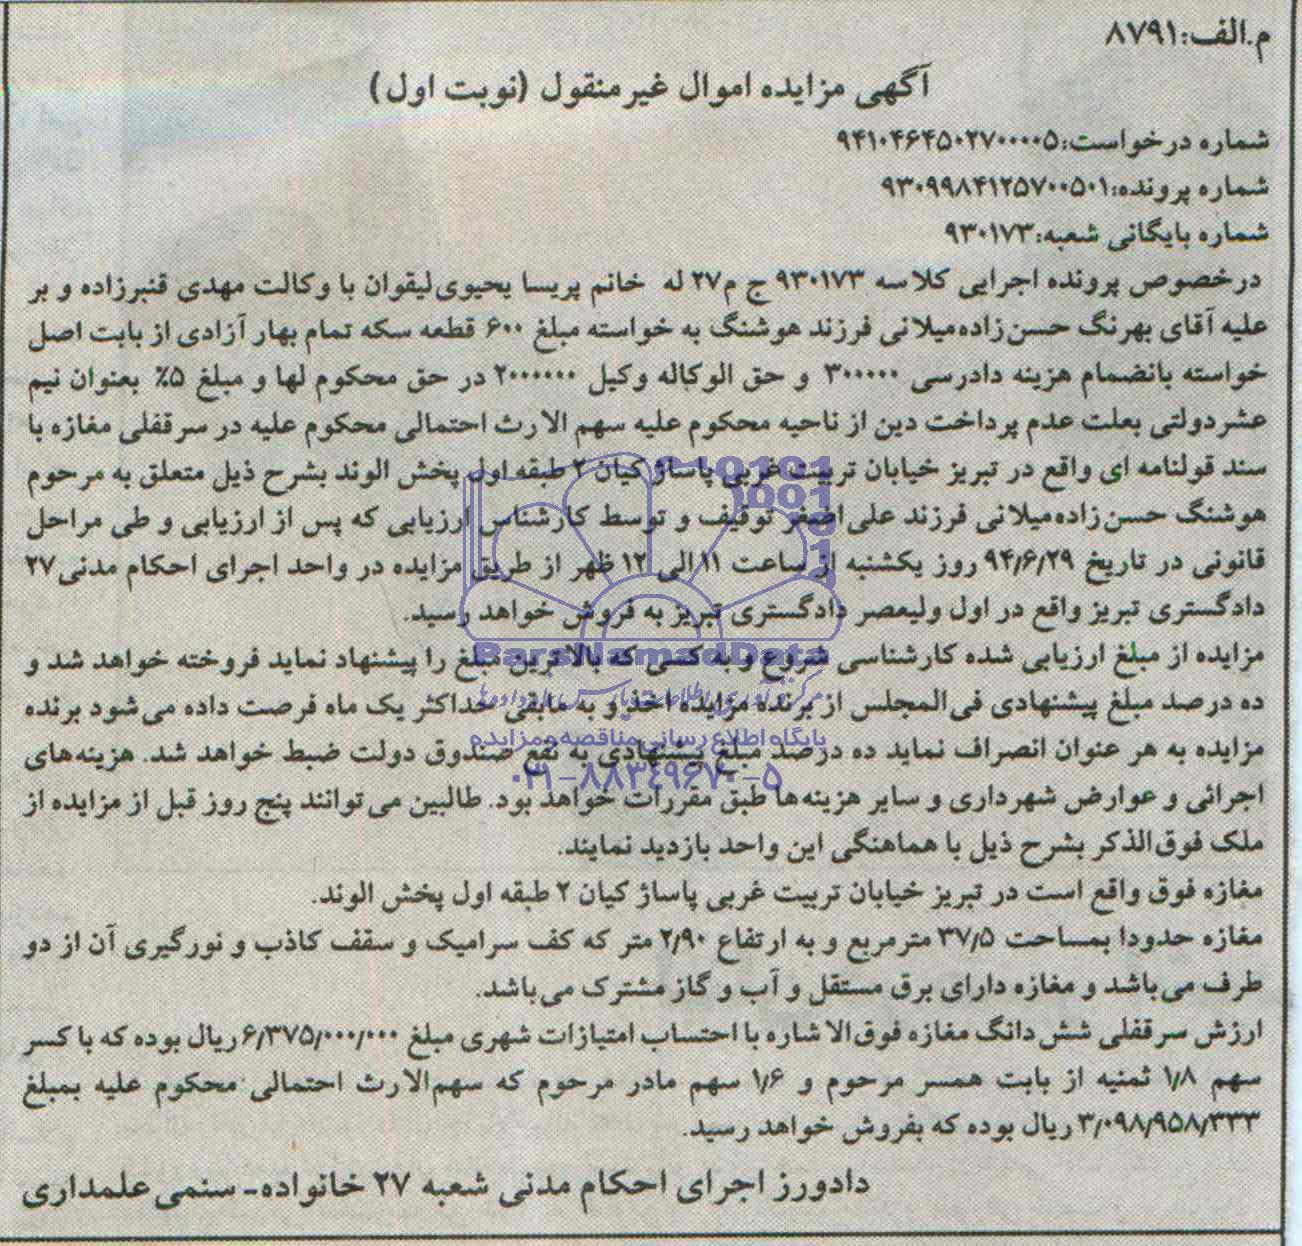 م.الف:۸۷۹۱
آگهی مزایده اموال غیرمنقول (نوبت اول)
شماره درخواست:۹۴۱۰۴۶۴۵۰۲۷۰۰۰۰۵
شماره پرونده:۹۳۰۹۹۸۴۱۲۵۷۰۰۵۰۱
شماره بایگانی شعبه:۹۳۰۱۷۳
درخصوص پرونده اجرایی کلاسه ۹۳۰۱۷۳ ج م۲۷ له خانم پریسا یحیوی‌لیقوان با وکالت مهدی قنبرزاده و بر
علیه آقای بهرنگ حسن‌زاده‌میلانی فرزند هوشنگ به خواسته مبلغ ۶۰۰ قطعه سکه تمام بهار آزادی از بابت اصل
خواسته بانضمام هزینه دادرسی ۳۰۰۰۰۰ و حق الوکاله وکیل ۲۰۰۰۰۰۰ در حق محکوم لها و مبلغ ۵٪ بعنوان نیم
عشردولتی بعلت عدم پرداخت دین از ناحیه محکوم علیه سهم الارث احتمالی محکوم علیه در سرقفلی مغازه با
سند قولنامه ای واقع در تبریز خیابان تربیت غربی پاساژ کیان ۲ طبقه اول پخش الوند بشرح ذیل متعلق به مرحوم
هوشنگ حسن‌زاده‌میلانی فرزند علی‌اصغر توقیف و توسط کارشناس ارزیابی که پس از ارزیابی و طی مراحل
قانونی در تاریخ ۹۴/۶/۲۹ روز یکشنبه از ساعت ۱۱ الی ۱۲ ظهر از طریق مزایده در واحد اجرای احکام مدنی۲۷
دادگستری تبریز واقع در اول ولیعصر دادگستری تبریز به فروش خواهد رسید.
مزایده از مبلغ ارزیابی شده کارشناسی شروع و به کسی که بالاترین مبلغ را پیشنهاد نماید فروخته خواهد شد و
ده درصد مبلغ پیشنهادی فی‌المجلس از برنده مزایده اخذ و به مابقی حداکثر یک ماه فرصت داده می‌شود برنده
مزایده به هر عنوان انصراف نماید ده درصد مبلغ پیشنهادی به نفع صندوق دولت ضبط خواهد شد. هزینه‌های
اجرائی و عوارض شهرداری و سایر هزینه‌ها طبق مقررات خواهد بود. طالبین می‌توانند پنج روز قبل از مزایده از
ملک فوق‌الذکر بشرح ذیل با هماهنگی این واحد بازدید نمایند.
مغازه فوق واقع است در تبریز خیابان تربیت غربی پاساژ کیان ۲ طبقه اول پخش الوند.
مغازه حدودا بمساحت ۳۷/۵ مترمربع و به ارتفاع ۲/۹۰ متر که کف سرامیک و سقف کاذب و نورگیری آن از دو
طرف می‌باشد و مغازه دارای برق مستقل و آب و گاز مشترک می‌باشد.
ارزش سرقفلی شش‌دانگ مغازه فوق‌الاشاره با احتساب امتیازات شهری مبلغ ۶/۳۷۵/۰۰۰/۰۰۰ ریال بوده که با کسر
سهم ۱/۸ ثمنیه از بابت همسر مرحوم و ۱/۶ سهم مادر مرحوم که سهم‌الارث احتمالی محکوم علیه بمبلغ
۳/۰۹۸/۹۵۸/۳۳۳ ریال بوده که بفروش خواهد رسید.
دادورز اجرای احکام مدنی شعبه ۲۷ خانواده- سنمی علمداری
ParsNamadData
پایگاه اطلاع رسانی مناقصه و مزایده
۰۲۱-۸۸۳۴۹۶۷۰-۵